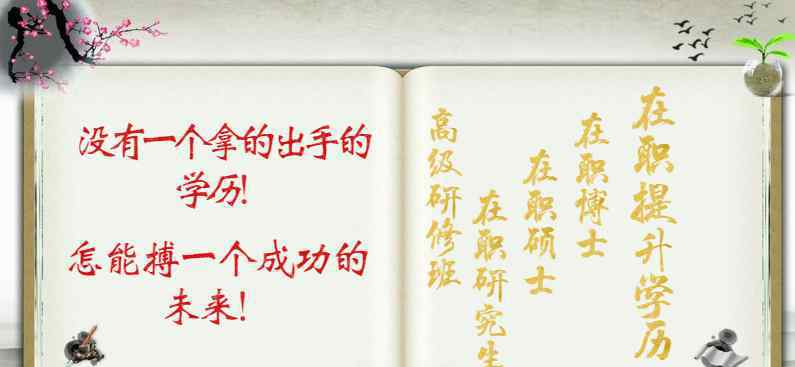 没有一个拿的出手的
学历!
怎能搏一个成功的
未来!
在职提升学历
在职博士
在职硕士
在职研究生
高级研修班